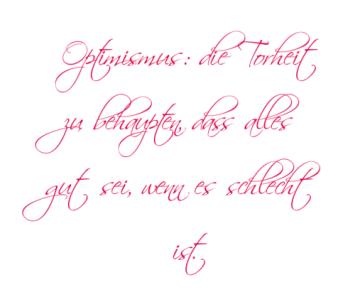 Optimismus: die Torheit
zu behaupten, dass alles
gut sei, wenn es schlecht
ist.